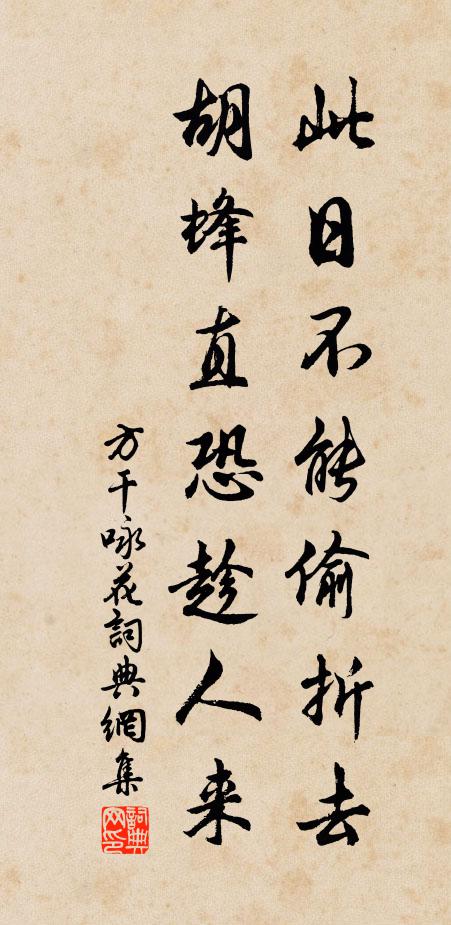 此日不能偷折去
胡蜂直恐趁人来
方干咏花詞典網集
詞典网印